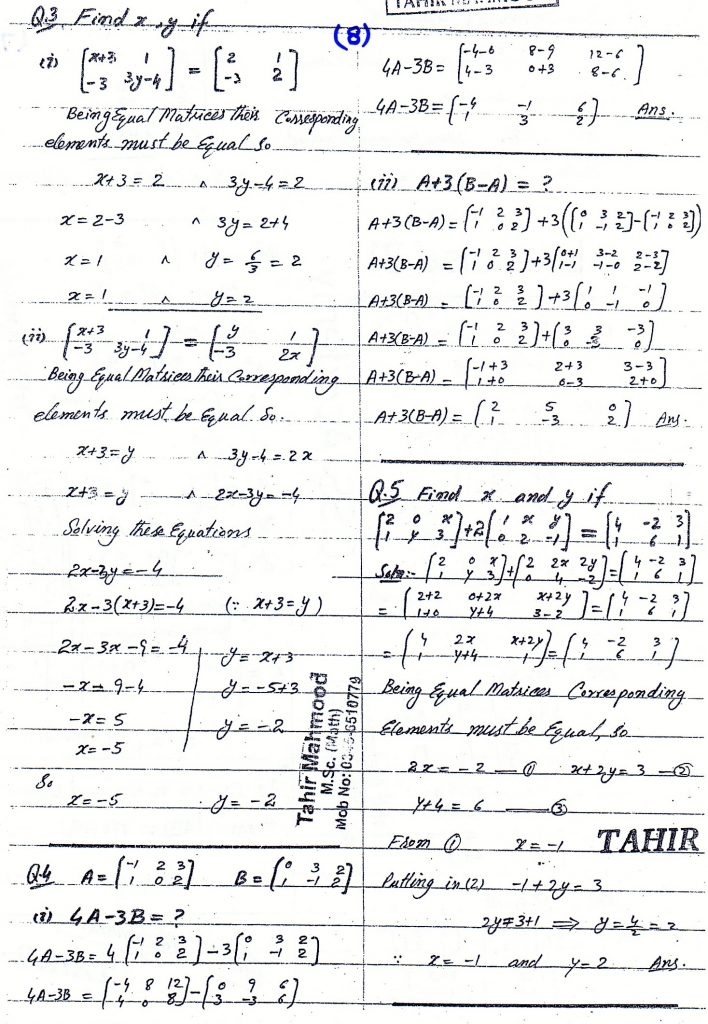 (8)
Q.3 Find x, y if
(i) [x+3 1 / -3 3y-4] = [2 1 / -3 2]
Being Equal Matrices their Corresponding
elements must be Equal So
x+3 = 2 ∧ 3y-4 = 2
x = 2-3 ∧ 3y = 2+4
x = 1 ∧ y = 6/3 = 2
x = 1 ∧ y = 2
(ii) [x+3 1 / -3 3y-4] = [y 1 / -3 2x]
Being Equal Matrices their Corresponding
elements must be Equal So.
x+3 = y ∧ 3y-4 = 2x
x+3 = y ∧ 2x-3y = -4
Solving these Equations
2x-3y = -4
2x-3(x+3) = -4 (∵ x+3 = y)
2x-3x-9 = -4
-x = 9-4
-x = 5
x = -5
y = x+3
y = -5+3
y = -2
So
x = -5 y = -2
Tahir Mahmood
M.Sc. (Math)
Mob No:
Q.4 A = [-1 2 3 / 1 0 2] B = [0 3 2 / 1 -1 2]
(i) 4A-3B = ?
4A-3B = 4[-1 2 3 / 1 0 2] - 3[0 3 2 / 1 -1 2]
4A-3B = [-4 8 12 / 4 0 8] - [0 9 6 / 3 -3 6]
4A-3B = [-4-0 8-9 12-6 / 4-3 0+3 8-6]
4A-3B = [-4 -1 6 / 1 3 2] Ans.
(ii) A+3(B-A) = ?
A+3(B-A) = [-1 2 3 / 1 0 2] + 3([0 3 2 / 1 -1 2] - [-1 2 3 / 1 0 2])
A+3(B-A) = [-1 2 3 / 1 0 2] + 3[0+1 3-2 2-3 / 1-1 -1-0 2-2]
A+3(B-A) = [-1 2 3 / 1 0 2] + 3[1 1 -1 / 0 -1 0]
A+3(B-A) = [-1 2 3 / 1 0 2] + [3 3 -3 / 0 -3 0]
A+3(B-A) = [-1+3 2+3 3-3 / 1+0 0-3 2+0]
A+3(B-A) = [2 5 0 / 1 -3 2] Ans.
Q.5 Find x and y if
[2 0 x / 1 y 3] + 2[1 x y / 0 2 -1] = [4 -2 3 / 1 6 1]
Soln:- [2 0 x / 1 y 3] + [2 2x 2y / 0 4 -2] = [4 -2 3 / 1 6 1]
= [2+2 0+2x x+2y / 1+0 y+4 3-2] = [4 -2 3 / 1 6 1]
= [4 2x x+2y / 1 y+4 1] = [4 -2 3 / 1 6 1]
Being Equal Matrices Corresponding
Elements must be Equal, So
2x = -2 — ① x+2y = 3 — ②
y+4 = 6 — ③
From ① x = -1
TAHIR
Putting in (2) -1+2y = 3
2y = 3+1 ⟹ y = 4/2 = 2
∵ x = -1 and y = 2 Ans.